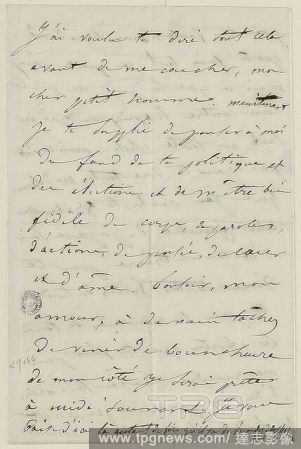 J'ai voulu te dire tout cela
avant de me coucher, mon
cher petit homme. maintenant
Je te supplie de penser à moi
du fond de ta politique et
des élections et de m'être bien
fidèle de corps, de paroles,
d'actions, de pensée, de cœur
et d'âme. bonsoir, mon
amour, à demain tâchez
de venir de bonne heure
de mon côté je serai prête
à midi
baise d'ici là autant de fois qu'il y a de
TPG
www.tpgnews.com/達志影像